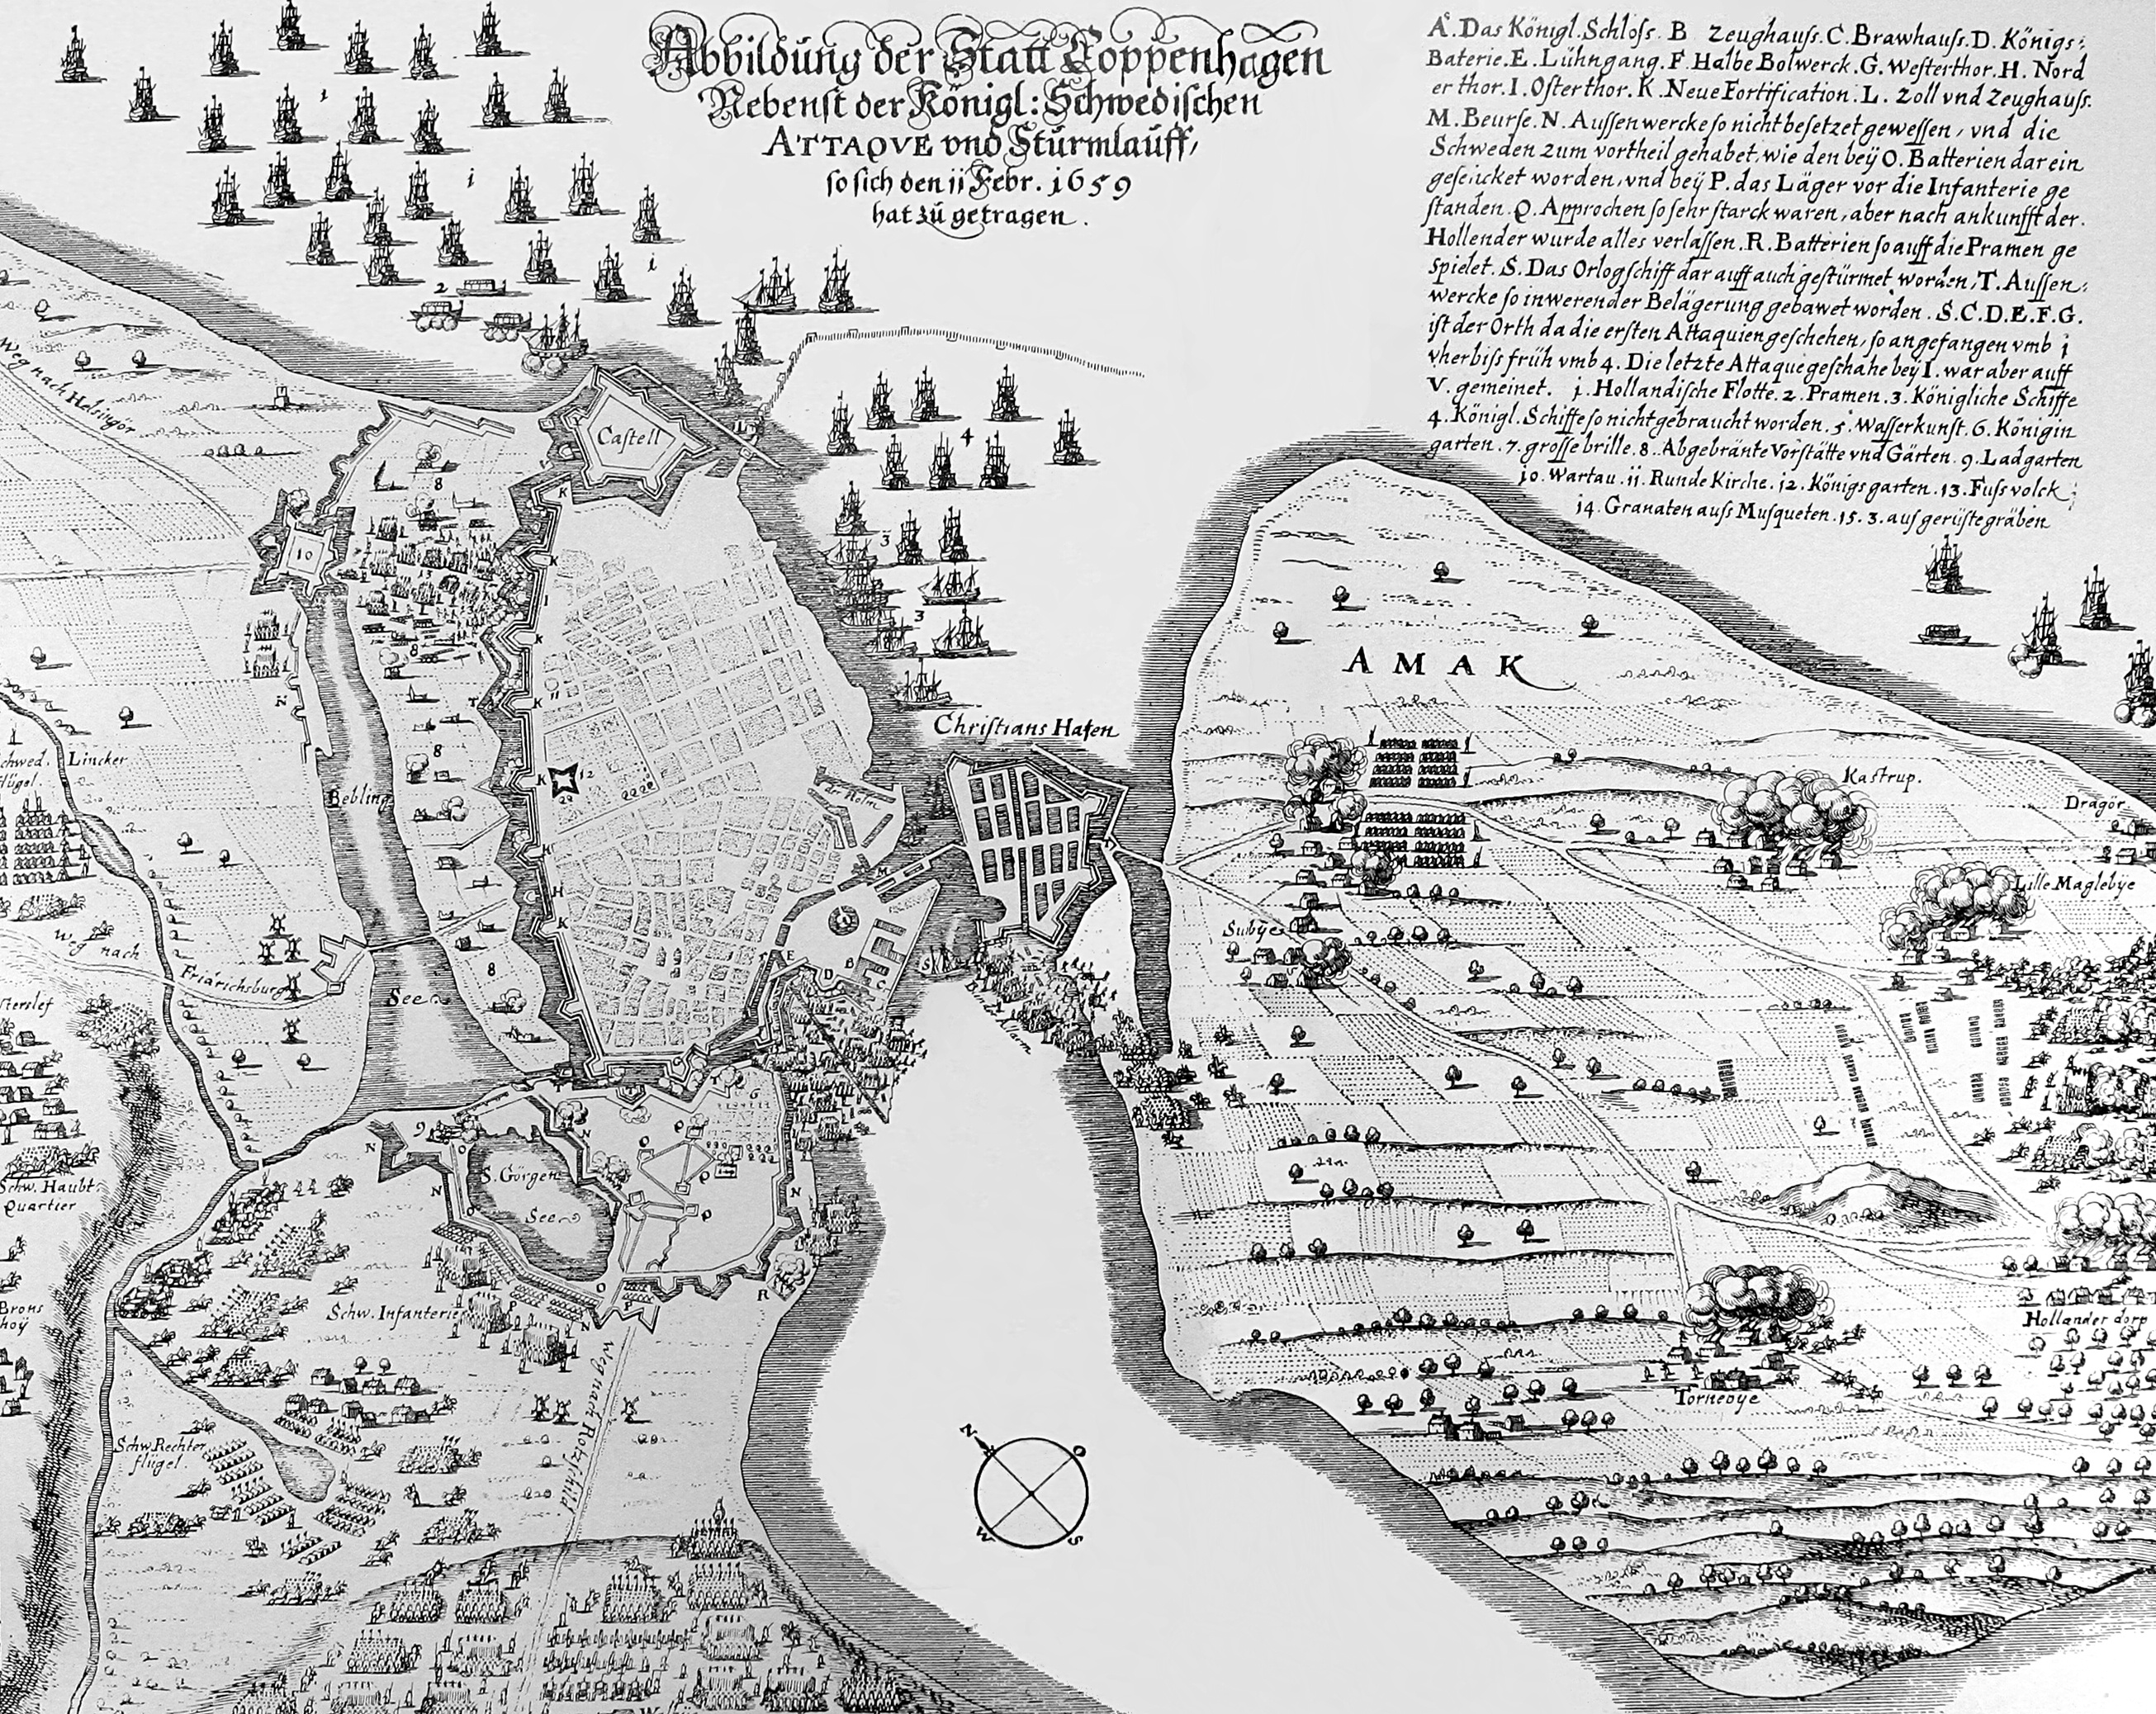 Abbildung der Statt Coppenhagen
Nebenst der Königl: Schwedischen
ATTAQVE vnd Sturmlauff,
so sich den ii Febr. i659
hat zu getragen.
A. Das Königl. Schloss. B Zeughauss. C. Brawhauss. D. Königs:
Baterie. E. Lühngang. F. Halbe Bolwerck. G. Westerthor. H. Nord
er thor. I. Osterthor. K. Neue Fortification. L. Zoll vnd Zeughauss.
M. Beurse. N. Aussenwercke so nicht besetzet gewessen, vnd die
Schweden zum vortheil gehabet, wie den beÿ O. Batterien darein
worden, vnd beÿ P. das Läger vor die Infanterie ge
standen. Q. Approchen so sehr starck waren, aber nach ankunfft der.
Hollender wurde alles verlassen. R. Batterien so auff die Pramen ge
spielet. S. Das Orlogschiff dar auff auch gestürmet worden, T. Aussen:
wercke so in werender Belägerung gebawet worden. S. C. D. E. F. G.
ist der Orth da die ersten Attaquien geschehen, so angefangen vmb i
vher biss früh vmb 4. Die letzte Attaque geschahe beÿ I. war aber auff
V. gemeinet. i. Hollandische Flotte. 2. Pramen. 3. Königliche Schiffe
4. Königl. Schiffe so nicht gebraucht worden. 5. Wasserkunst. 6. Königin
garten. 7. grosse brille. 8. Abgebränte Vorstätte vnd Gärten. 9. Ladgarten
i0. Wartau. ii. Runde Kirche. i2. Königs garten. i3. Fuss volck
i4. Granaten auss Musqueten. i5. 3. aus gerüste gräben
i
i
i
2
Weg nach Helsingör
Castell
4
3
3
8
10
13
8
8
8
K
K
I
K
K
K
K
H
K
T
N
11
12
AMAK
Christians Hafen
Kastrup.
Dragör
Lille Maglebÿe
Lincker
Bebling
Holm
M
Subÿe
Weg nach
Friärichsburg
See
E
D
B
C
S
6
9
N
O
N
N
N
S. Görgen
See
Q
P
O
R
Schw. Haubt:
Quartier
Brons
hoÿ
Schw. Infanterie
Weg nach Rotzschild
Schw Rechter
flügel.
Hollander dorp
Torneoÿe
N
O
W
S